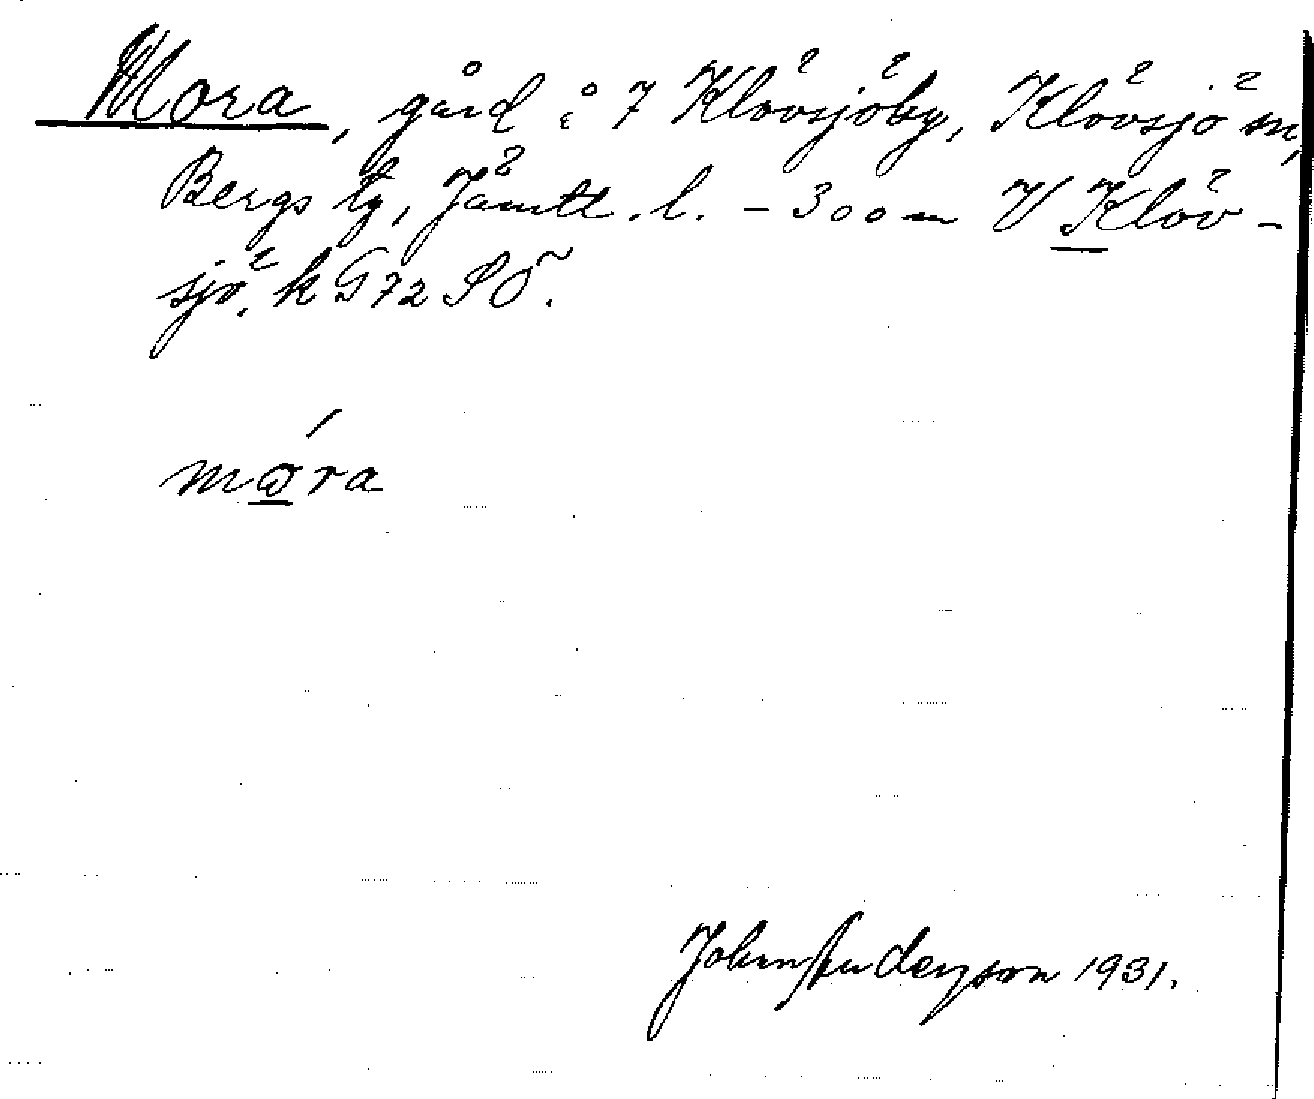 Mora, gård i 7 Klövsjöby, Klövsjö sn,
Bergs tg, Jämtl. l. – 300 m V Klöv-
sjö k G72 SÖ.
mωra
John Anderson 1931.